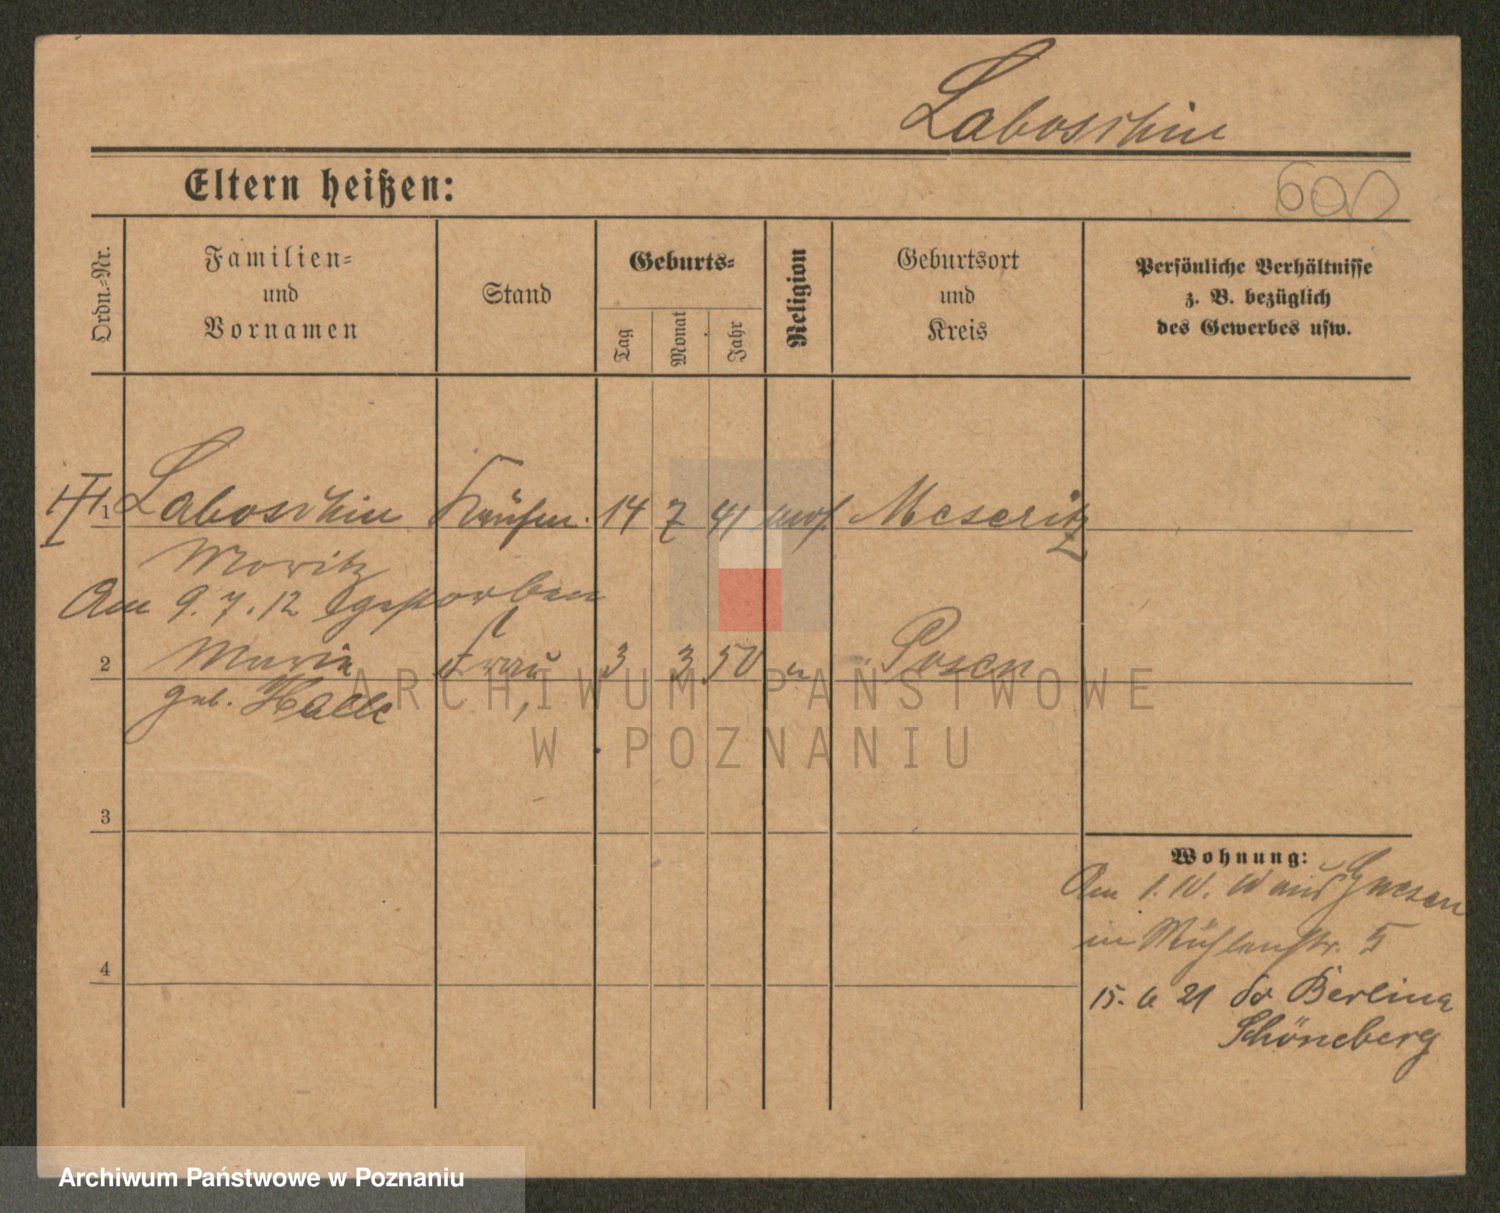 Laboschin
Eltern heißen:
600
Ordn.-Nr.
Familien-
und
Vornamen
Stand
Geburts-
Tag
Monat
Jahr
Religion
Geburtsort
und
Kreis
Persönliche Verhältnisse
z. B. bezüglich
des Gewerbes usw.
1 Laboschin Kaufm. 14 7 41 mos. Meseritz
Moritz
Am 9.7.12 gestorben
2 Marie Frau 3 3 50 " Posen
geb. Halle
ARCHIWUM PAŃSTWOWE
W POZNANIU
3
Wohnung:
Am 1. 10. 10 aus Gnesen
in Mühlenstr. 5
4
15. 6 21 Berlin
Schöneberg
Archiwum Państwowe w Poznaniu